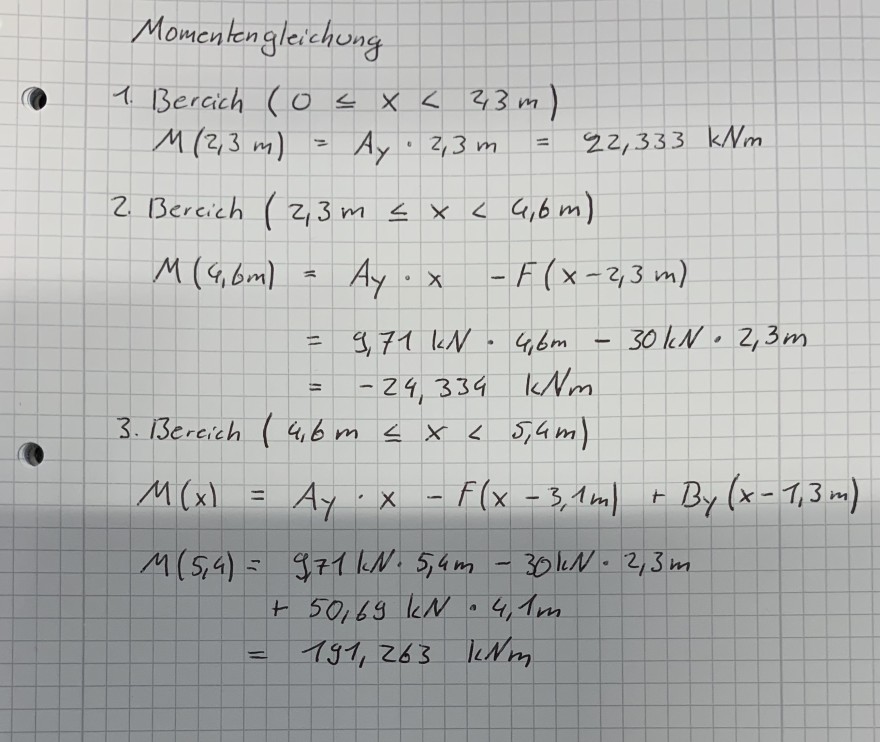 Momentengleichung
1. Bereich ( 0 ≤ x < 2,3 m )
M(2,3 m) = Ay · 2,3 m = 22,333 kNm
2. Bereich ( 2,3 m ≤ x < 4,6 m )
M(4,6m) = Ay · x - F(x-2,3 m)
= 9,71 kN · 4,6m - 30 kN · 2,3 m
= -24,334 kNm
3. Bereich ( 4,6 m ≤ x < 5,4m )
M(x) = Ay · x - F(x - 3,1m) + By (x-1,3m)
M(5,4) = 9,71 kN · 5,4m - 30 kN · 2,3 m
+ 50,69 kN · 4,1m
= 191,263 kNm